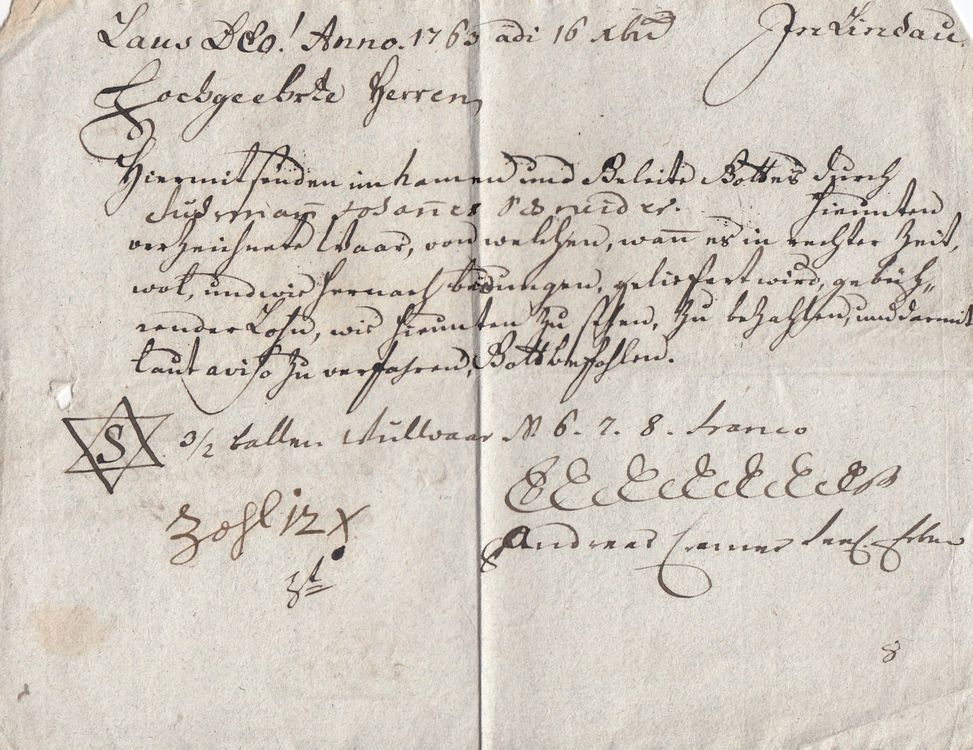 Laus Deo! Anno. 1763 adi 16 Xbr̃ In Lindau.
Hochgeehrte Herren,
Hiermit senden im namen und Geleite Gottes durch
fuhrmañ Johañes Schneider. hieunten
verzeichnete Waar, von welchen, wañ es in rechter Zeit,
wol, und wie hernach bedungen, geliefert wird, gebüh„
render Lohn, wie hieunten zu sehen, zu bezahlen, und darmit
laut aviso zu verfahren, Gott befohlen.
S 3/2 ballen wullwaar N. 6. 7. 8. franco
Zohl 12 X
Andreas Cramer seel. Erben
8